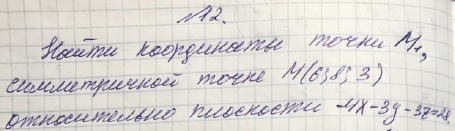 №12.
Найти координаты точки M₁,
симметричной точке M(6; 8; 3)
относительно плоскости -4x-3y-3z=28.